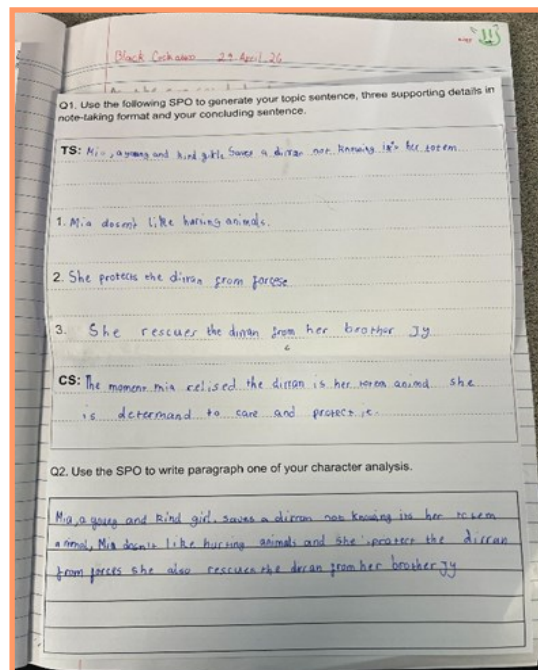 Black Cockatoo 29 April 26
Q1. Use the following SPO to generate your topic sentence, three supporting details in
note-taking format and your concluding sentence.
TS: Mia, a young and kind girl, Saves a dirran not knowing it's her totem
1. Mia dosen't like hursing animals.
2. She protects the dirran from forcese
3. She rescues the dirran from her brother Jy
CS: The moment mia relised the dirran is her totem animal she
is determand to care and protect it.
Q2. Use the SPO to write paragraph one of your character analysis.
Mia, a young and kind girl, saves a dirran not knowing its her totem
animal, Mia dosn't like hursing animals and she protect the dirran
from forces she also rescues the dirran from her brother Jy